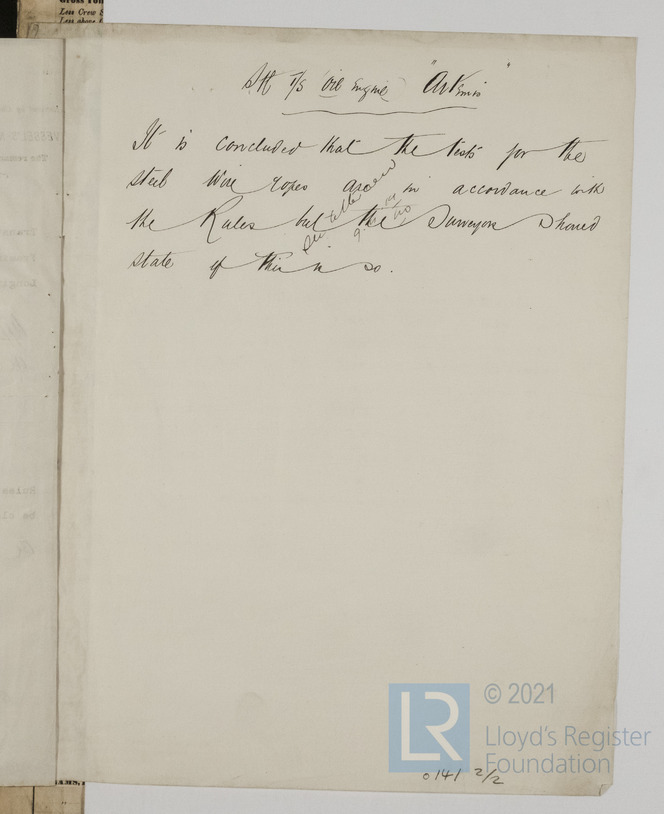 Less Crew S
Stl T/S Oil Engine "Artemis"
It is concluded that the tests for the
steel wire ropes are in accordance with
the Rules but the Surveyors should
state if this is so.
letter
© 2021
LR
Lloyd's Register
Foundation
0141 2/2